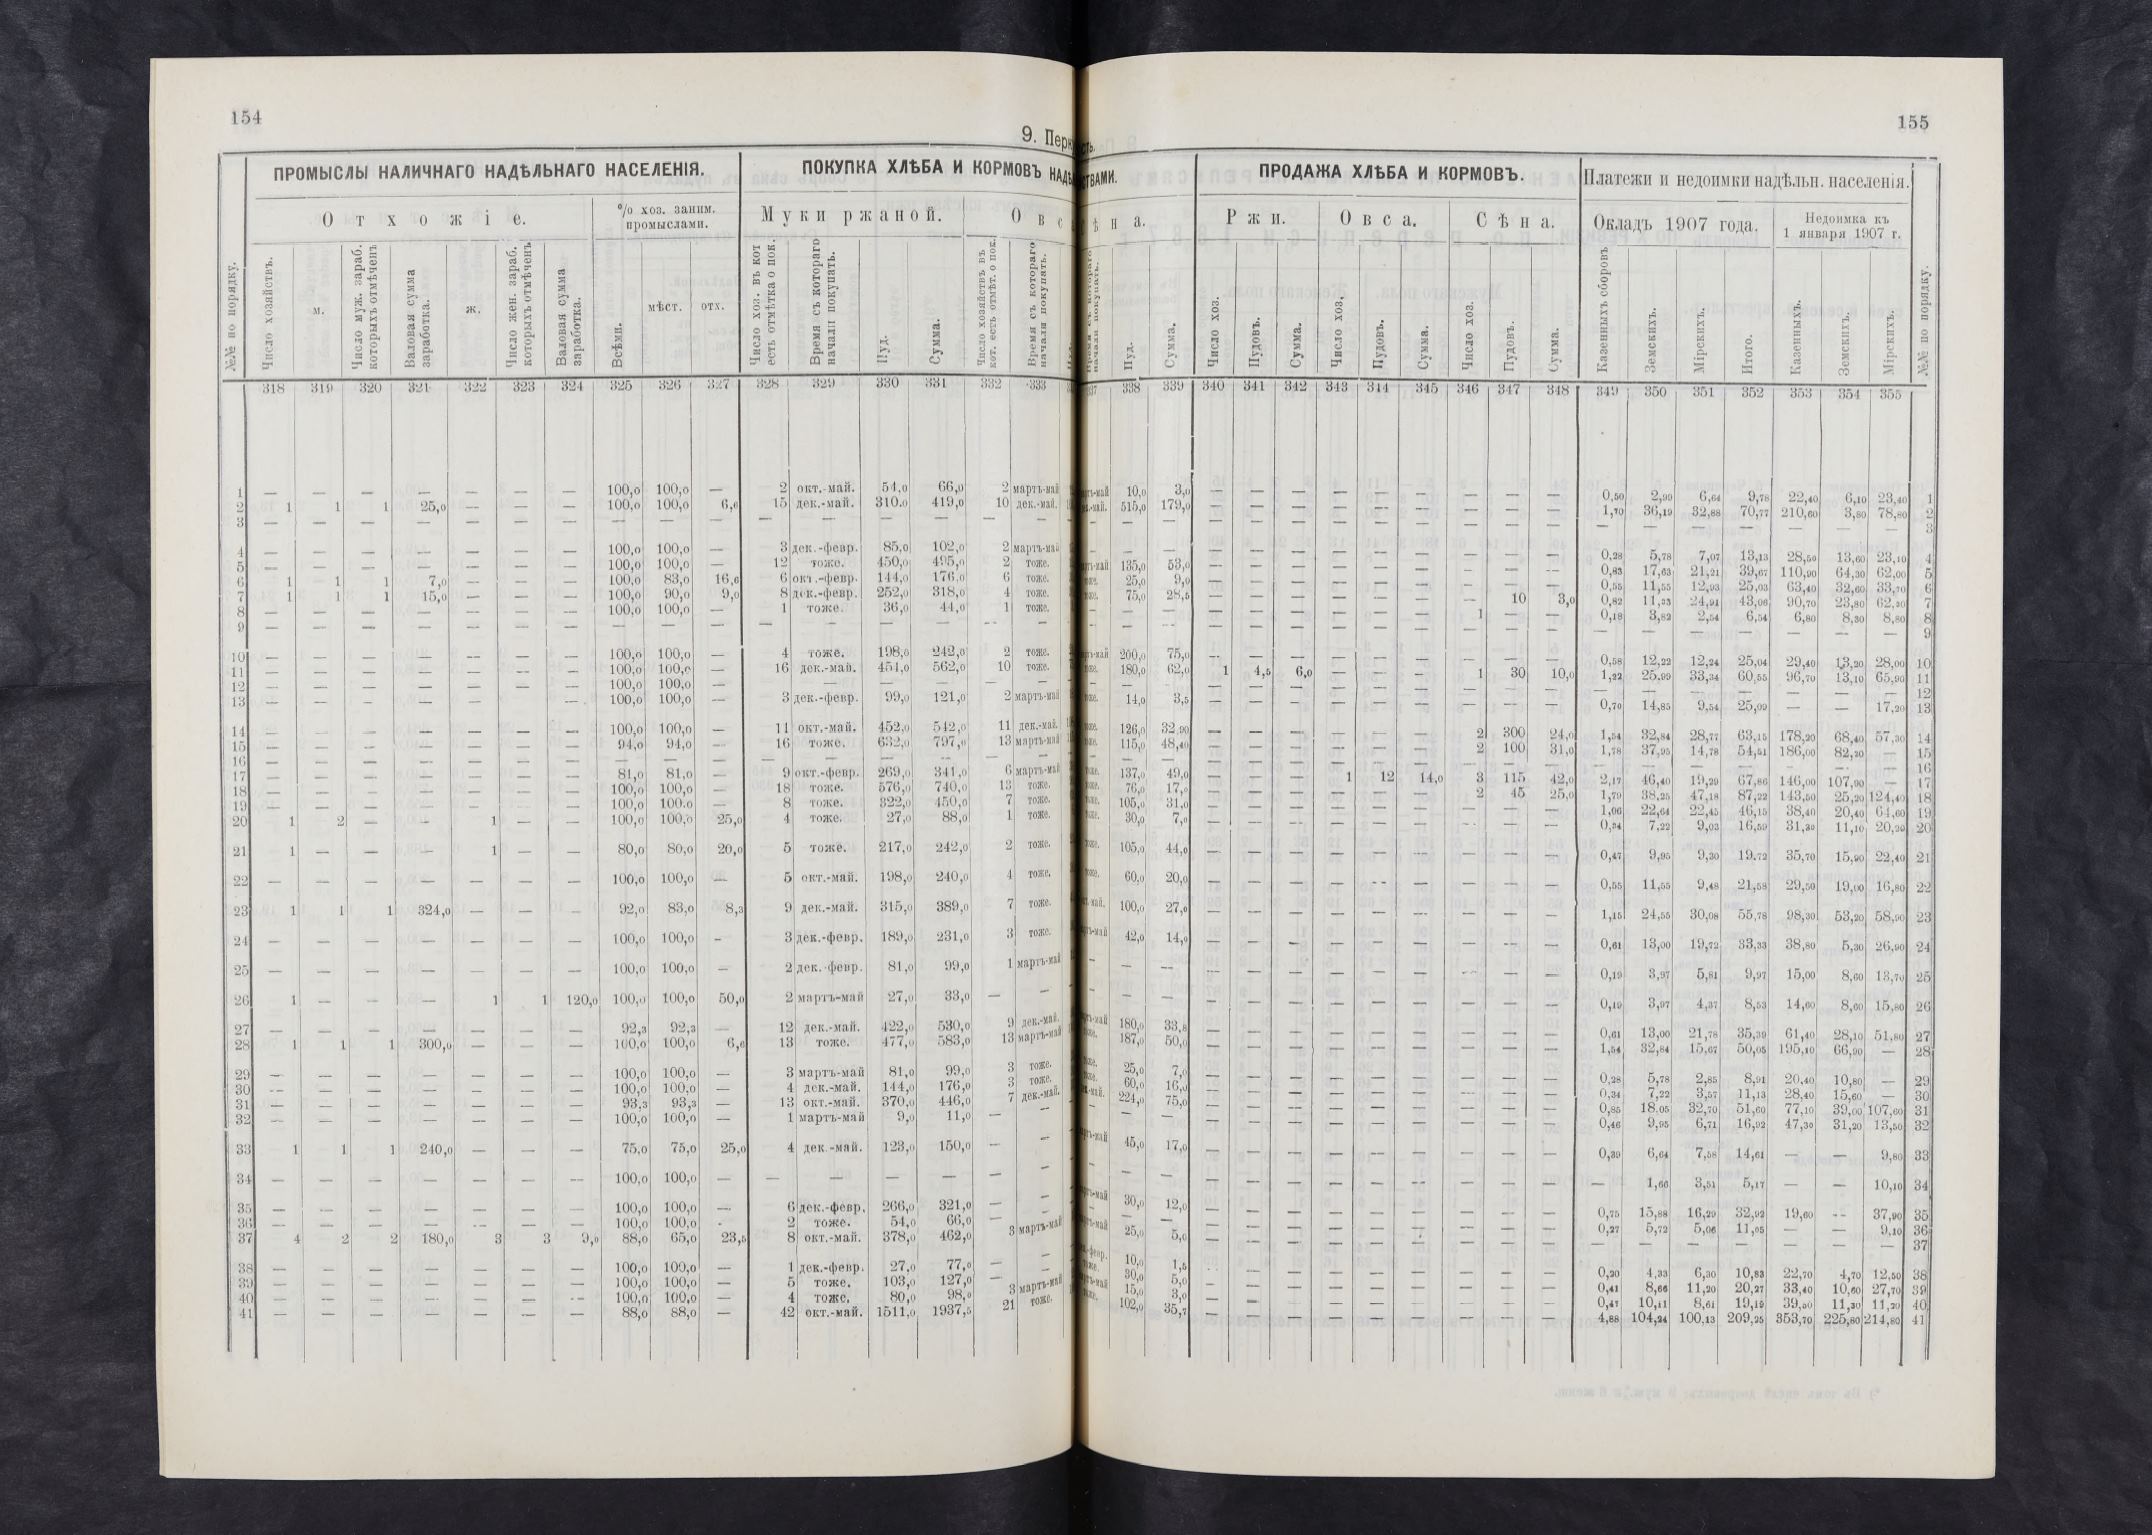 154
9. Перх
ПРОМЫСЛЫ НАЛИЧНАГО НАДѢЛЬНАГО НАСЕЛЕНІЯ.
ПОКУПКА ХЛѢБА И КОРМОВЪ
Отхожіе.
% хоз. заним. промыслами.
Муки ржаной.
№№ по порядку.
Число хозяйствъ.
м.
Число муж. зараб. которыхъ отмѣченъ
Валовая сумма заработка.
ж.
Число жен. зараб. которыхъ отмѣченъ
Валовая сумма заработка.
Всѣми.
мѣст.
отх.
Число хоз. въ кот есть отмѣтка о пок.
Время съ котораго начали покупать.
Пуд.
Сумма.
Число хозяйствъ въ кот. есть отмѣт. о пок.
Время съ котораго начали покупать.
318 319 320 321 322 323 324 325 326 327 328 329 330 331 332 333
1 — — — — — — — 100,0 100,0 — 2 окт.-май. 54,0 66,0 2 мартъ-май
2 1 1 1 25,0 — — — 100,0 100,0 6,6 15 дек.-май. 310,0 419,0 10 дек.-май.
3 — — — — — — — — — — — — — — — —
4 — — — — — — — 100,0 100,0 — 3 дек.-февр. 85,0 102,0 2 мартъ-май
5 — — — — — — — 100,0 100,0 — 12 тоже. 450,0 495,0 2 тоже.
6 1 1 1 7,0 — — — 100,0 83,0 16,6 6 окт.-февр. 144,0 176,0 6 тоже.
7 1 1 1 15,0 — — — 100,0 90,0 9,0 8 дек.-февр. 252,0 318,0 4 тоже.
8 — — — — — — — 100,0 100,0 — 1 тоже. 36,0 44,0 1 тоже.
9 — — — — — — — — — — — — — — — —
10 — — — — — — — 100,0 100,0 — 4 тоже. 198,0 242,0 2 тоже.
11 — — — — — — — 100,0 100,0 — 16 дек.-май. 454,0 562,0 10 тоже.
12 — — — — — — — 100,0 100,0 — — — — — —
13 — — — — — — — 100,0 100,0 — 3 дек.-февр. 99,0 121,0 2 мартъ-май
14 — — — — — — — 100,0 100,0 — 11 окт.-май. 452,0 542,0 11 дек.-май.
15 — — — — — — — 94,0 94,0 — 16 тоже. 632,0 797,0 13 мартъ-май
16 — — — — — — — — — — — — — — — —
17 — — — — — — — 81,0 81,0 — 9 окт.-февр. 269,0 341,0 6 мартъ-май
18 — — — — — — — 100,0 100,0 — 18 тоже. 576,0 740,0 13 тоже.
19 — — — — — — — 100,0 100,0 — 8 тоже. 322,0 450,0 7 тоже.
20 1 2 — — 1 — — 100,0 100,0 25,0 4 тоже. 27,0 88,0 1 тоже.
21 1 — — — 1 — — 80,0 80,0 20,0 5 тоже. 217,0 242,0 2 тоже.
22 — — — — — — — 100,0 100,0 — 5 окт.-май. 198,0 240,0 4 тоже.
23 1 1 1 324,0 — — — 92,0 83,0 8,3 9 дек.-май. 315,0 389,0 7 тоже.
24 — — — — — — — 100,0 100,0 — 3 дек.-февр. 189,0 231,0 3 тоже.
25 — — — — — — — 100,0 100,0 — 2 дек.-февр. 81,0 99,0 1 мартъ-май
26 1 — — — 1 1 120,0 100,0 100,0 50,0 2 мартъ-май 27,0 33,0 — —
27 — — — — — — — 92,3 92,3 — 12 дек.-май. 422,0 530,0 9 дек.-май.
28 1 1 1 300,0 — — — 100,0 100,0 6,6 13 тоже. 477,0 583,0 13 мартъ-май
29 — — — — — — — 100,0 100,0 — 3 мартъ-май 81,0 99,0 3 тоже.
30 — — — — — — — 100,0 100,0 — 4 дек.-май. 144,0 176,0 3 тоже.
31 — — — — — — — 93,3 93,3 — 13 окт.-май. 370,0 446,0 7 дек.-май.
32 — — — — — — — 100,0 100,0 — 1 мартъ-май 9,0 11,0 — —
33 1 1 1 240,0 — — — 75,0 75,0 25,0 4 дек.-май. 123,0 150,0 — —
34 — — — — — — — 100,0 100,0 — — — — — — —
35 — — — — — — — 100,0 100,0 — 6 дек.-февр. 266,0 321,0 — —
36 — — — — — — — 100,0 100,0 - 2 тоже. 54,0 66,0 — —
37 4 2 2 180,0 3 3 9,0 88,0 65,0 23,5 8 окт.-май. 378,0 462,0 3 мартъ-май
38 — — — — — — — 100,0 100,0 — 1 дек.-февр. 27,0 77,0 — —
39 — — — — — — — 100,0 100,0 — 5 тоже. 103,0 127,0 — —
40 — — — — — — — 100,0 100,0 — 4 тоже. 80,0 98,0 3 мартъ-май
41 — — — — — — — 88,0 88,0 — 42 окт.-май. 1511,0 1937,5 21 тоже.
155
ПРОДАЖА ХЛѢБА И КОРМОВЪ.
Платежи и недоимки надѣльн. населенія.
Ржи.
Овса.
Сѣна.
Окладъ 1907 года.
Недоимка къ 1 января 1907 г.
Пуд.
Сумма.
Число хоз.
Пудовъ.
Сумма.
Число хоз.
Пудовъ.
Сумма.
Число хоз.
Пудовъ.
Сумма.
Казенныхъ сборовъ
Земскихъ.
Мірскихъ.
Итого.
Казенныхъ.
Земскихъ.
Мірскихъ.
№№ по порядку.
337 338 339 340 341 342 343 344 345 346 347 348 349 350 351 352 353 354 355
10,0 3,0 — — — — — — — — — 0,50 2,99 6,64 9,78 22,40 6,10 23,40 1
515,0 179,0 — — — — — — — — — 1,70 36,19 32,88 70,77 210,60 3,80 78,80 2
— — — — — — — — — — — — — — — — — — 3
— — — — — — — — — — — 0,28 5,78 7,07 13,13 28,50 13,60 23,10 4
135,0 53,0 — — — — — — — — — 0,83 17,63 21,21 39,67 110,90 64,30 62,00 5
25,0 9,0 — — — — — — — — — 0,55 11,55 12,93 25,03 63,40 32,60 33,70 6
75,0 28,5 — — — — — — — 10 3,0 0,82 11,33 24,91 43,06 90,70 23,80 62,20 7
— — — — — — — — 1 — — 0,18 3,82 2,54 6,54 6,80 8,30 8,80 8
— — — — — — — — — — — — — — — — — — 9
200,0 75,0 — — — — — — — — — 0,58 12,22 12,24 25,04 29,40 13,20 28,00 10
180,0 62,0 1 4,5 6,0 — — — 1 30 10,0 1,22 25,99 33,34 60,55 96,70 13,10 65,90 11
— — — — — — — — — — — — — — — — — — 12
14,0 3,5 — — — — — — — — — 0,70 14,85 9,54 25,09 — — 17,20 13
126,0 32,90 — — — — — — 2 300 24,0 1,54 32,84 28,77 63,15 178,20 68,40 57,30 14
115,0 48,40 — — — — — — 2 100 31,0 1,78 37,95 14,78 54,51 186,00 82,20 — 15
— — — — — — — — — — — — — — — — — — 16
137,0 49,0 — — — 1 12 14,0 3 115 42,0 2,17 46,40 19,29 67,86 146,00 107,90 — 17
76,0 17,0 — — — — — — 2 45 25,0 1,79 38,25 47,18 87,22 143,50 25,20 124,40 18
105,0 31,0 — — — — — — — — — 1,06 22,64 22,45 46,15 38,40 20,40 64,60 19
30,0 7,0 — — — — — — — — — 0,34 7,22 9,03 16,59 31,30 11,10 20,20 20
105,0 44,0 — — — — — — — — — 0,47 9,95 9,30 19,72 35,70 15,90 22,40 21
60,0 20,0 — — — — — — — — — 0,55 11,55 9,48 21,58 29,50 19,00 16,80 22
100,0 27,0 — — — — — — — — — 1,15 24,55 30,08 55,78 98,30 53,20 58,90 23
42,0 14,0 — — — — — — — — — 0,61 13,00 19,72 33,33 38,80 5,30 26,90 24
— — — — — — — — — — — 0,19 3,97 5,81 9,97 15,00 8,60 13,70 25
— — — — — — — — — — — 0,19 3,97 4,37 8,53 14,60 8,60 15,80 26
180,0 33,8 — — — — — — — — — 0,61 13,00 21,78 35,39 61,40 28,10 51,80 27
187,0 50,0 — — — — — — — — — 1,54 32,84 15,67 50,05 195,10 66,90 — 28
25,0 7,0 — — — — — — — — — 0,28 5,78 2,85 8,91 20,40 10,80 — 29
60,0 16,0 — — — — — — — — — 0,34 7,22 3,57 11,13 28,40 15,60 — 30
224,0 75,0 — — — — — — — — — 0,85 18,05 32,70 51,60 77,10 39,00 107,60 31
— — — — — — — — — — — 0,46 9,95 6,71 16,92 47,30 31,20 13,50 32
45,0 17,0 — — — — — — — — — 0,39 6,64 7,58 14,61 — — 9,80 33
— — — — — — — — — — — — 1,66 3,51 5,17 — — 10,10 34
30,0 12,0 — — — — — — — — — 0,75 15,88 16,29 32,92 19,60 — 37,90 35
— — — — — — — — — — — 0,27 5,72 5,06 11,05 — — 9,10 36
25,0 5,0 — — — — — — — — — — — — — — — — 37
10,0 1,5 — — — — — — — — — 0,20 4,33 6,30 10,83 22,70 4,70 12,50 38
30,0 5,0 — — — — — — — — — 0,41 8,66 11,20 20,27 33,40 10,60 27,70 39
15,0 3,0 — — — — — — — — — 0,47 10,11 8,61 19,19 39,50 11,30 11,20 40
102,0 35,7 — — — — — — — — — 4,88 104,24 100,13 209,25 353,70 225,80 214,80 41